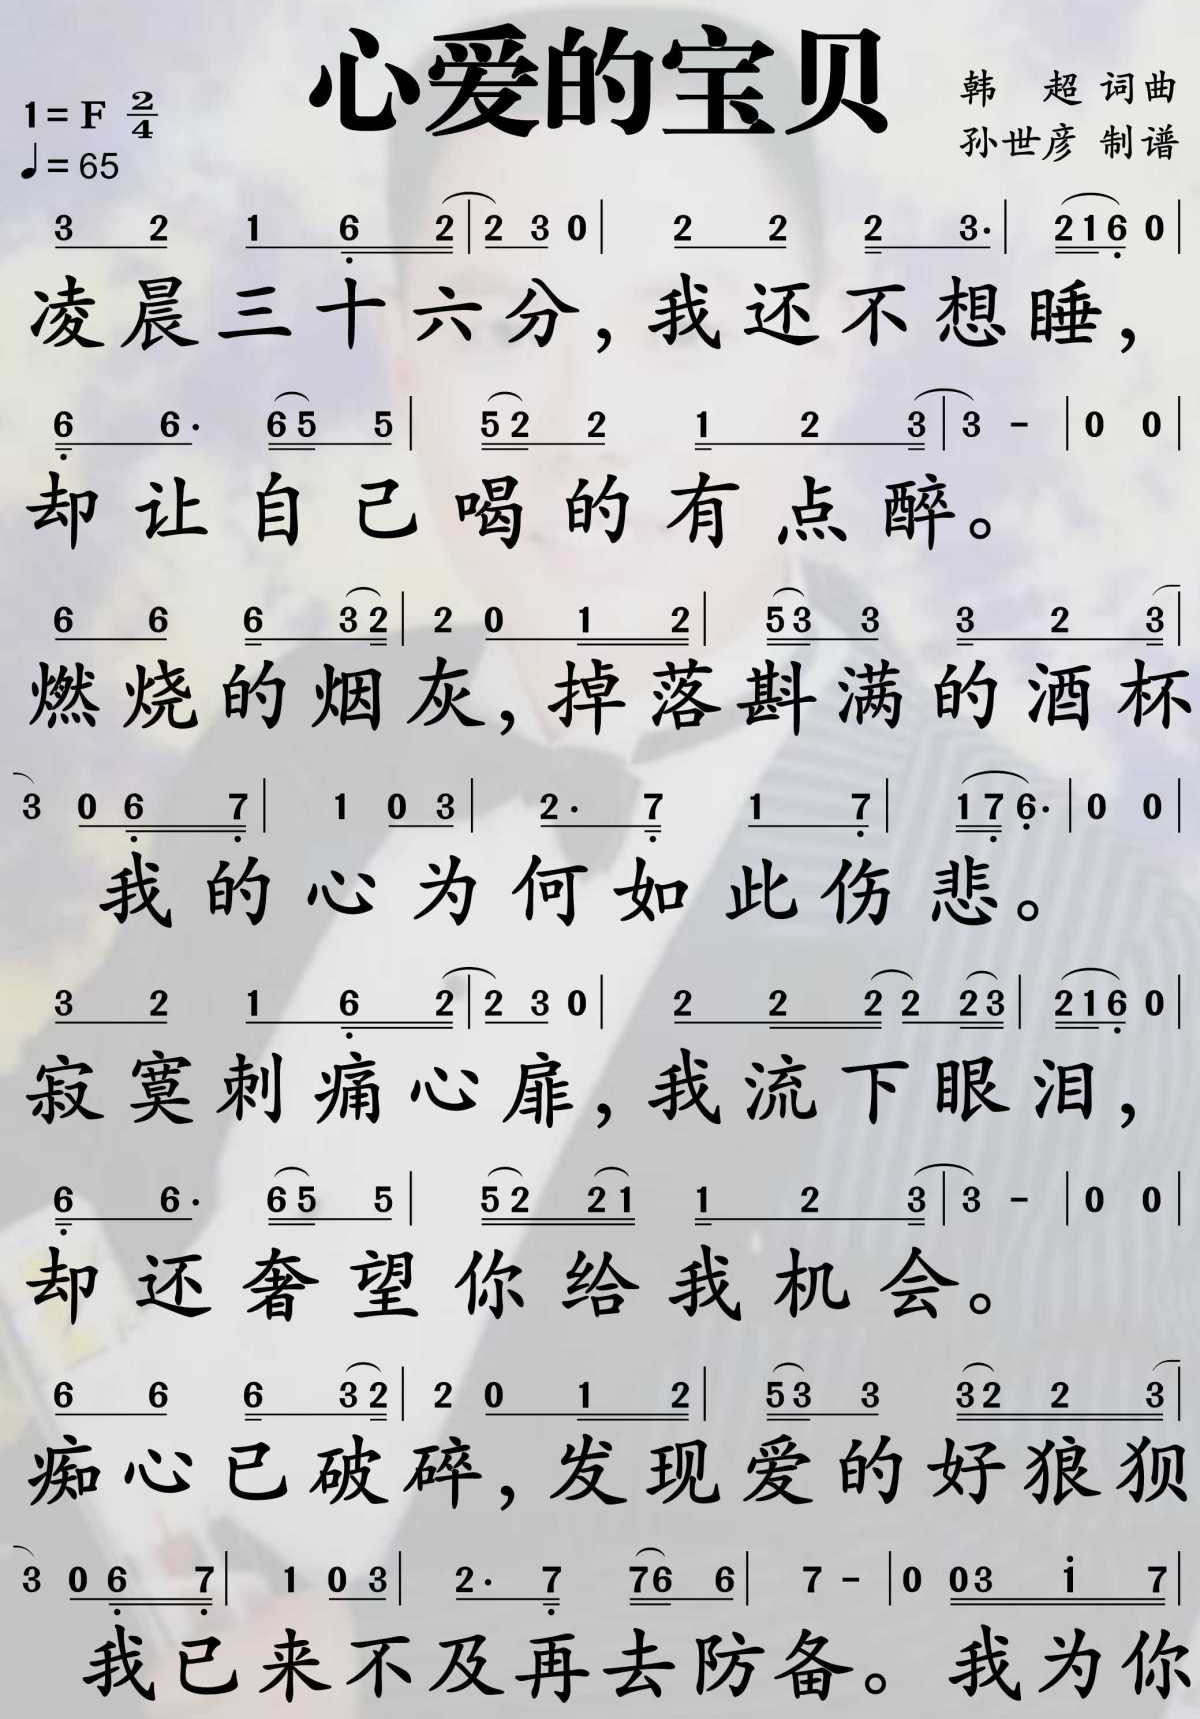 心爱的宝贝
1=F 2/4
♩=65
韩 超 词曲
孙世彦 制谱
3 2 1 6 2 | 2 3 0 | 2 2 2 3· | 2 1 6 0 |
凌晨三十六分，我还不想睡，
6 6· 6 5 5 | 5 2 2 1 2 3 | 3 - | 0 0 |
却让自己喝的有点醉。
6 6 6 3 2 | 2 0 1 2 | 5 3 3 3 2 3 |
燃烧的烟灰，掉落斟满的酒杯
3 0 6 7 | 1 0 3 | 2· 7 1 7 | 1 7 6· | 0 0 |
我的心为何如此伤悲。
3 2 1 6 2 | 2 3 0 | 2 2 2 2 2 3 | 2 1 6 0 |
寂寞刺痛心扉，我流下眼泪，
6 6· 6 5 5 | 5 2 2 1 1 2 3 | 3 - | 0 0 |
却还奢望你给我机会。
6 6 6 3 2 | 2 0 1 2 | 5 3 3 3 2 2 3 |
痴心已破碎，发现爱的好狼狈
3 0 6 7 | 1 0 3 | 2· 7 7 6 6 | 7 - | 0 0 3 i 7 |
我已来不及再去防备。我为你